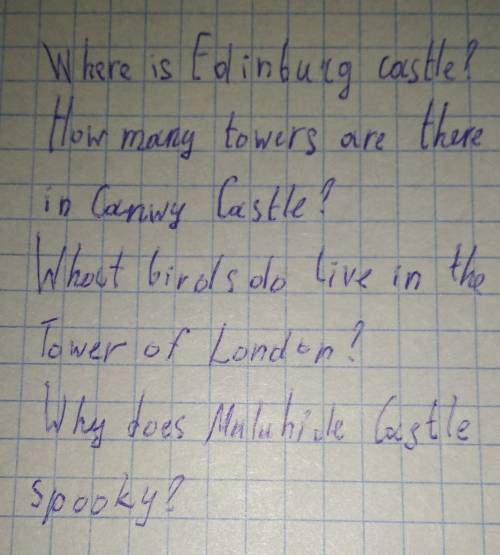 Where is Edinburg castle?
How many towers are there
in Canwy Castle?
What birds do live in the
Tower of London?
Why does Malahide Castle
spooky?